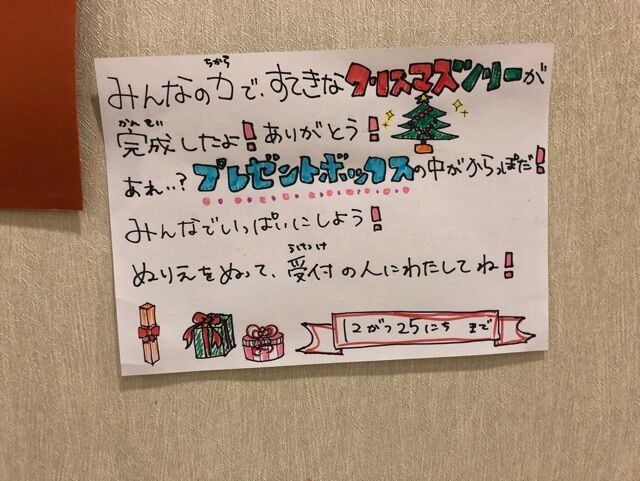 みんなの力で、すてきなクリスマスツリーが
ちから
完成したよ!ありがとう!
かんせい
あれ..?プレゼントボックスの中がからっぽだ!
みんなでいっぱいにしよう!
ぬりえをぬって、受付の人にわたしてね!
うけつけ
12がつ25にちまで